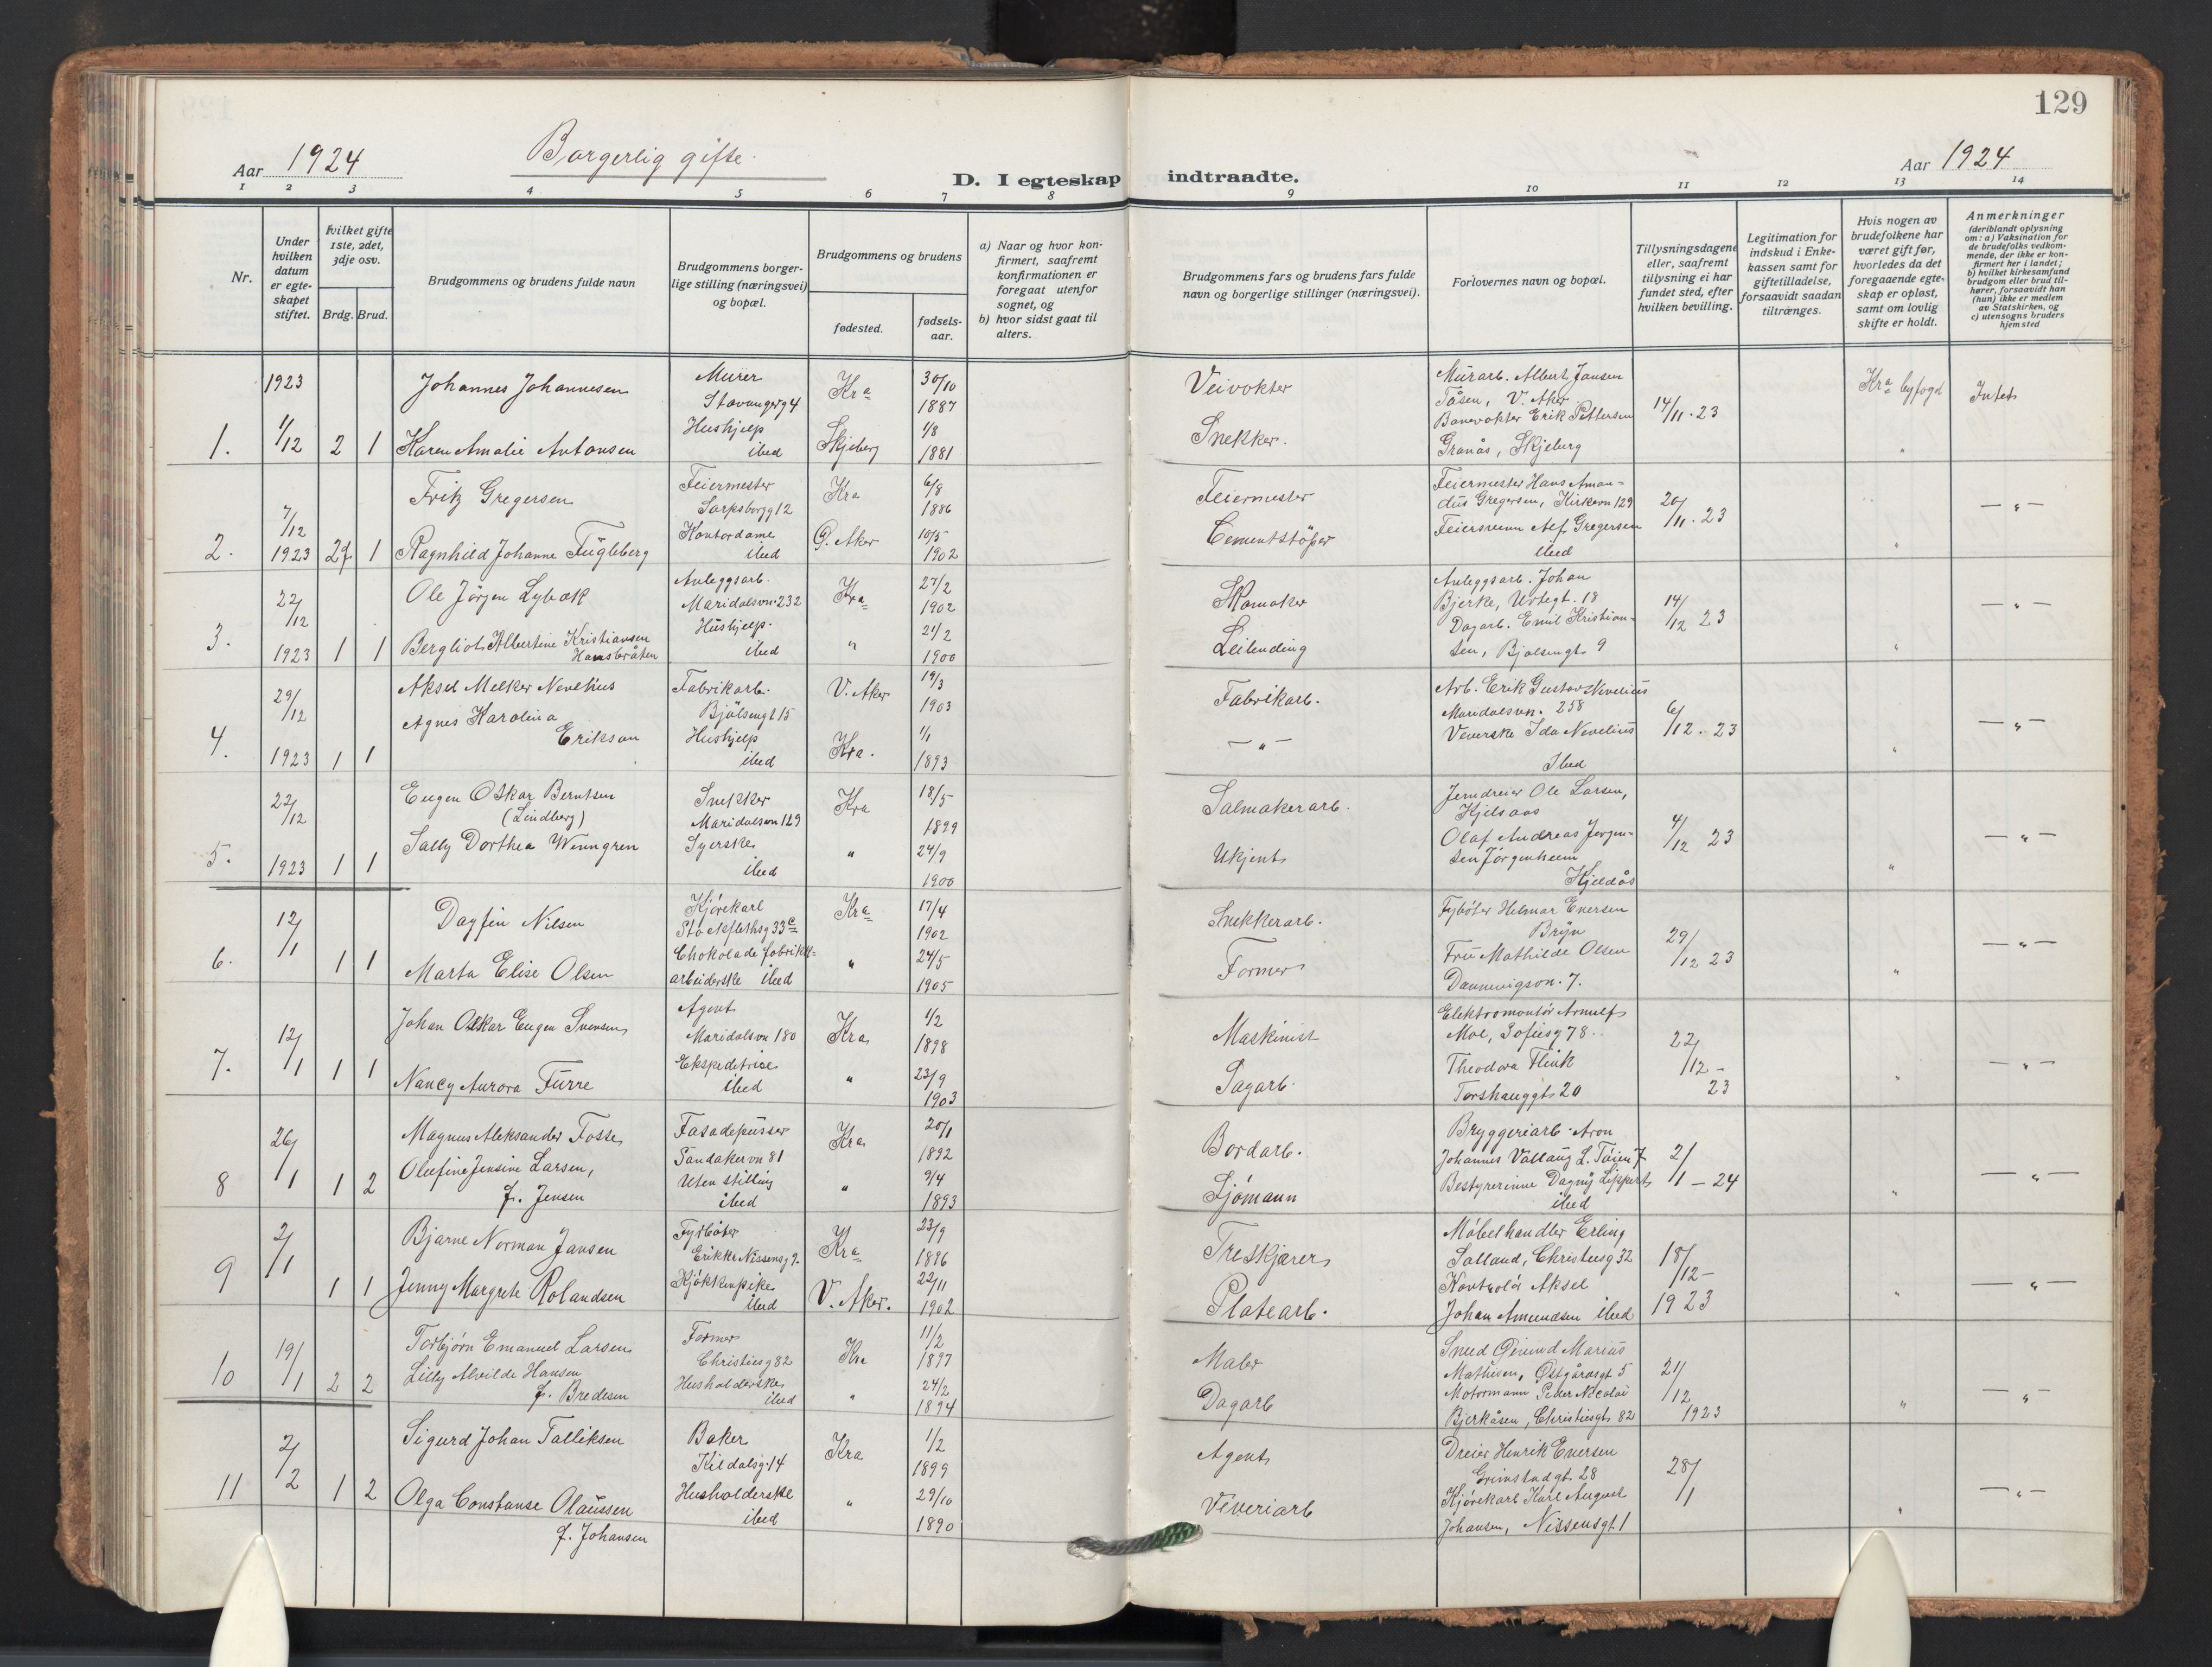 129
Aar 1924
Borgerlig gifte.
D. I egteskap indtraadte.
Aar 1924
1 2 3 4 5 6 7 8 9 10 11 12 13 14
Nr.
Under hvilken datum er egte-skapet stiftet.
hvilket gifte 1ste, 2det, 3dje osv.
Brdg. Brud.
Brudgommens og brudens fulde navn
Brudgommens borger-lige stilling (næringsvei) og bopæl.
Brudgommens og brudens
fødested.
fødsels-aar.
a) Naar og hvor kon-firmert, saafremt konfirmationen er foregaat utenfor sognet, og
b) hvor sidst gaat til alters.
Brudgommens fars og brudens fars fulde navn og borgerlige stillinger (næringsvei).
Forlovernes navn og bopæl.
Tillysningsdagene eller, saafremt tillysning ei har fundet sted, efter hvilken bevilling.
Legitimation for indskud i Enke-kassen samt for giftetilladelse, forsaavidt saadan tiltrænges.
Hvis nogen av brudefolkene har været gift før, hvorledes da det foregaaende egte-skap er opløst, samt om lovlig skifte er holdt.
Anmerkninger (deriblandt oplysning om: a) Vaksination for de brudefolks vedkom-mende, der ikke er kon-firmert her i landet; b) hvilket kirkesamfund brudgom eller brud til-hører, forsaavidt han (hun) ikke er medlem av Statskirken, og c) utensogns bruders hjemsted
1. 1923 1/12 2 1
Johannes Johannesen
Karen Amalie Antonsen
Murer
Stavangerg 4
Hushjelp
ibed
Kra
Skjeberg
30/10 1887
1/8 1881
Veivokter
Snekker.
Murarb. Albert Jansen
Tåsen, V. Aker.
Banevokter Erik Pettersen
Granås, Skjeberg
14/11. 23
Kra byfogd
Intet
2. 7/12 1923 2f 1
Fritz Gregersen
Ragnhild Johanne Fugleberg
Feiermester
Sarpsborgg 12
Kontordame
ibed
Kra
Ø. Aker
6/8 1886
10/5 1902
Feiermester
Cementstöper
Feiermester Hans Aman-
dus Gregersen, Kirkevn 129
Feiersvenn Alf Gregersen
ibed
20/11. 23
" — " —
3. 22/12 1923 1 1
Ole Jörgen Lybæk
Bergliot Albertine Kristiansen
Hansbråten
Anleggsarb.
Maridalsvn. 232
Hushjelp.
ibed
Kra
"
27/2 1902
21/2 1900
Skomaker
Leilending
Anleggsarb. Johan
Bjerke, Urtegt. 18
Dagarb. Emil Kristian-
sen, Bjølsengt 9
14/12 23
" — " —
4. 29/12 1923 1 1
Aksel Melker Nevelius
Agnes Karolina
Erikson
Fabrikarb.
Bjölsengt 15
Hushjelp
ibed
V. Aker
Kra.
19/3 1903
1/1 1893
Fabrikarb.
— " —
Arb. Erik Gustav Nevelius
Maridalsvn. 258
Veverske Ida Nevelius
Ibed
6/12. 23
" — " —
5. 22/12 1923 1 1
Eugen Oskar Berntsen
(Lindberg)
Sally Dorthea Wenngren
Snekker
Maridalsvn 129
Syerske
ibed
Kra
"
18/5 1899
24/9 1900
Salmakerarb.
Ukjent
Jerndreier Ole Larsen,
Kjelsaas
Olaf Andreas Jørgen-
sen Jørgenheim
Kjeldås
4/12 23
" — " —
6. 12/1 1 1
Dagfin Nilsen
Marta Elise Olsen
Kjørekarl
Stockflethsg 33c
Chokolade fabrikk-
arbeiderske ibed
Kra
"
17/4 1902
24/5 1905
Snekkerarb.
Former
Fyrbøter Helmar Eversen
Bryn
Fru Mathilde Olsen
Dannevigsvn. 7.
29/12 23
" — " —
7. 12/1 1 1
Johan Oskar Eugen Svensen
Nancy Aurora Furre
Agent
Maridalsvn 180
Ekspeditrise
ibed
Kra
"
1/2 1898
23/9 1903
Maskinist
Sagarb.
Elektromontör Arnulf
Moe, Sofiesg 78.
Theodora Flink
Torshauggt 20
22/12 - 23
" — " —
8 26/1 1 2
Magnus Aleksander Fosse
Oleefine Jensine Larsen,
f. Jensen
Fasadepusser
Sandakervn 81
Uten stilling
ibed
Kra
"
20/1 1892
9/4 1893
Bordarb.
Sjömann
Bryggeriarb. Aron
Johannes Vallaug L. Töien 7
Bestyrerinne Dagny Lippert
ibed
2/1 - 24
" — " —
9 2/1 1 1
Bjarne Norman Jansen
Jenny Margrete Rolandsen
Fyrbøter
Erikke Nissensg 9.
Kjökkenpike
ibed
Kra
V. Aker.
23/9 1896
22/11 1902
Treskjærer
Platearb.
Møbelhandler Erling
Salland, Christiesg 32
Kontrolör Aksel
Johan Amundsen ibed
18/12 - 1923
" — " —
10 19/1 2 2
Torbjørn Emanuel Larsen
Lilly Alvilde Hansen
f. Bredesen
Former
Christiesg 82
Husholderske
ibed
Kra
"
11/2 1897
24/2 1894
Maler
Dagarb
Sned Eivind Marius
Mathisen, Østgårdsgt 5
Motormann Peder Nicolai
Bjerkåsen, Christiesgt 82
21/12 1923
" — " —
11 2/2 1 2
Sigurd Johan Talliksen
Olga Constanse Olaussen
f. Johansen
Baker
Kildalsg. 14
Husholderske
ibed
Kra
"
1/2 1899
29/10 1890
Agent
Veveriarb
Dreier Henrik Eversen
Grimstadgt 28
Kjørekarl Karl August
Johansen, Nissensgt. 1
28/1
" — " —